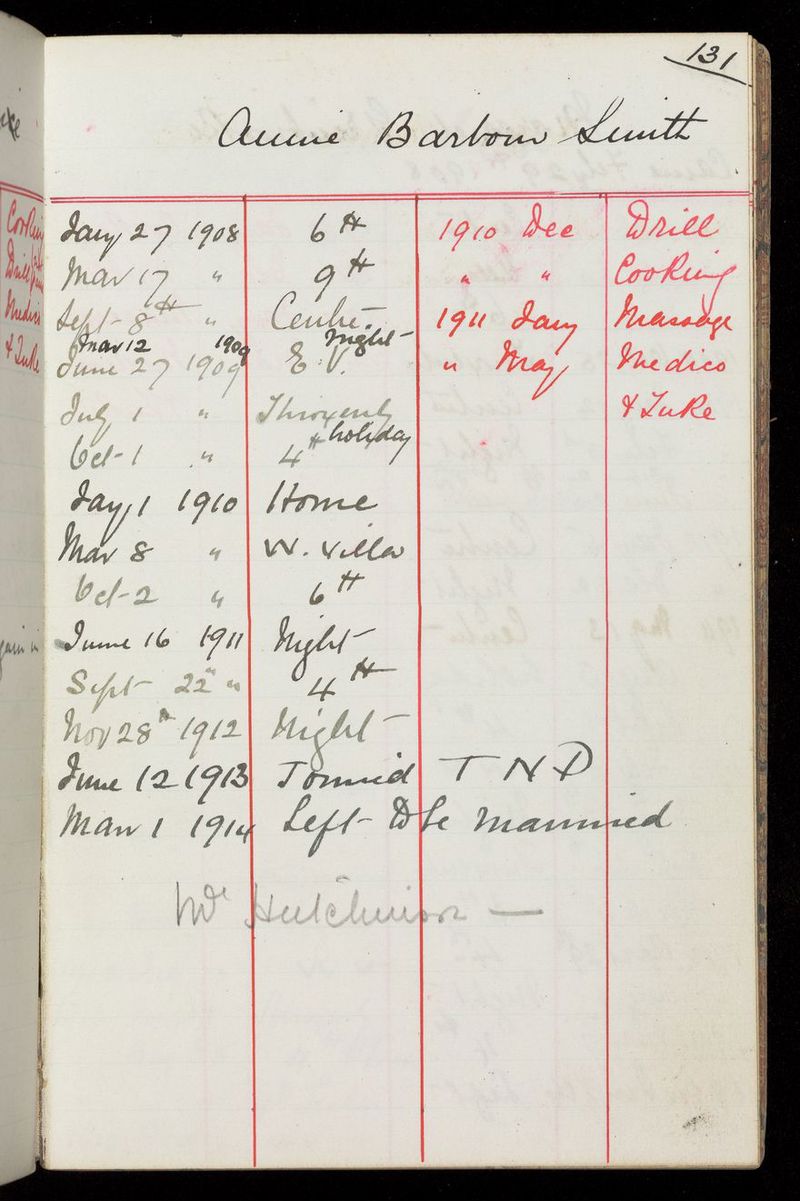 131
Annie Barbour Smith
Jany 27 1908 6th 1910 Dec Drill
Mar 17 " 9th " " Cooking
Sept 8th " Centre 1911 Jany Massage
Mar 12 1909 Night
June 27 1909 E. V. " May Medico
July 1 " & Tuke
holiday
Oct 1 " 4th
Jany 1 1910 Home
Mar 8 " W. Villa
Oct 2 " 6th
June 16 1911 Night
Sept 22nd " 4th
Nov 28th 1912 Night
June 12 1913 Joined T N D
Mar 1 1914 Left to be married
Mr Hutchinson —
Cooking
Drill
Medico
& Tuke